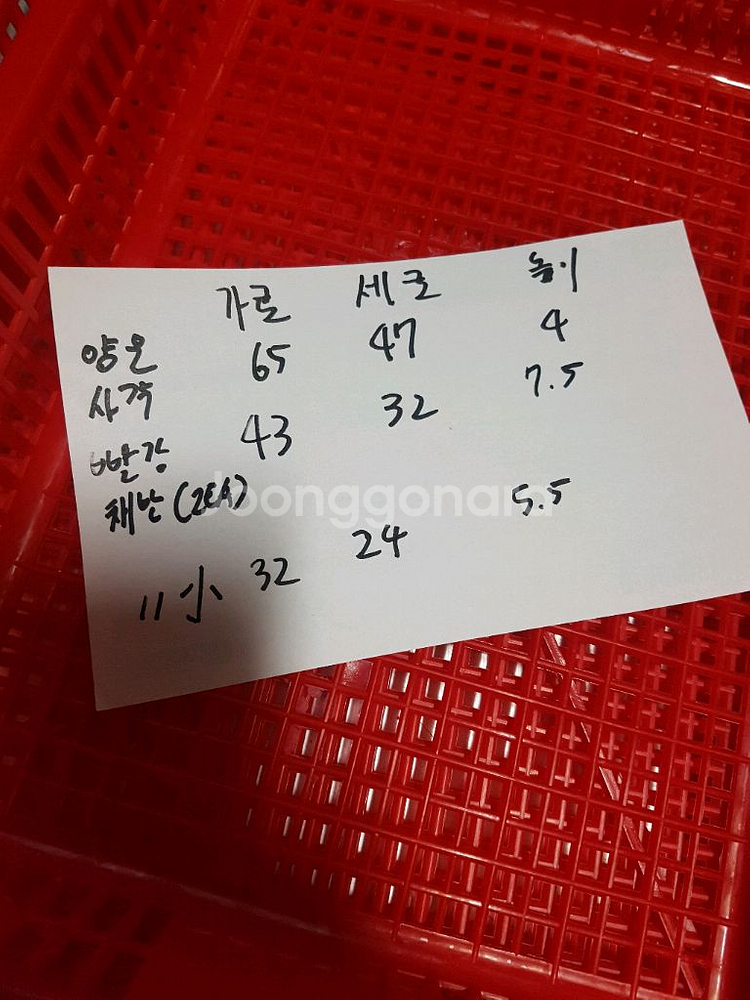 가로 세로 높이
양은 65 47 4
사각
빨강 43 32 7.5
채반(2EA)
〃小 32 24 5.5
Joonggonara